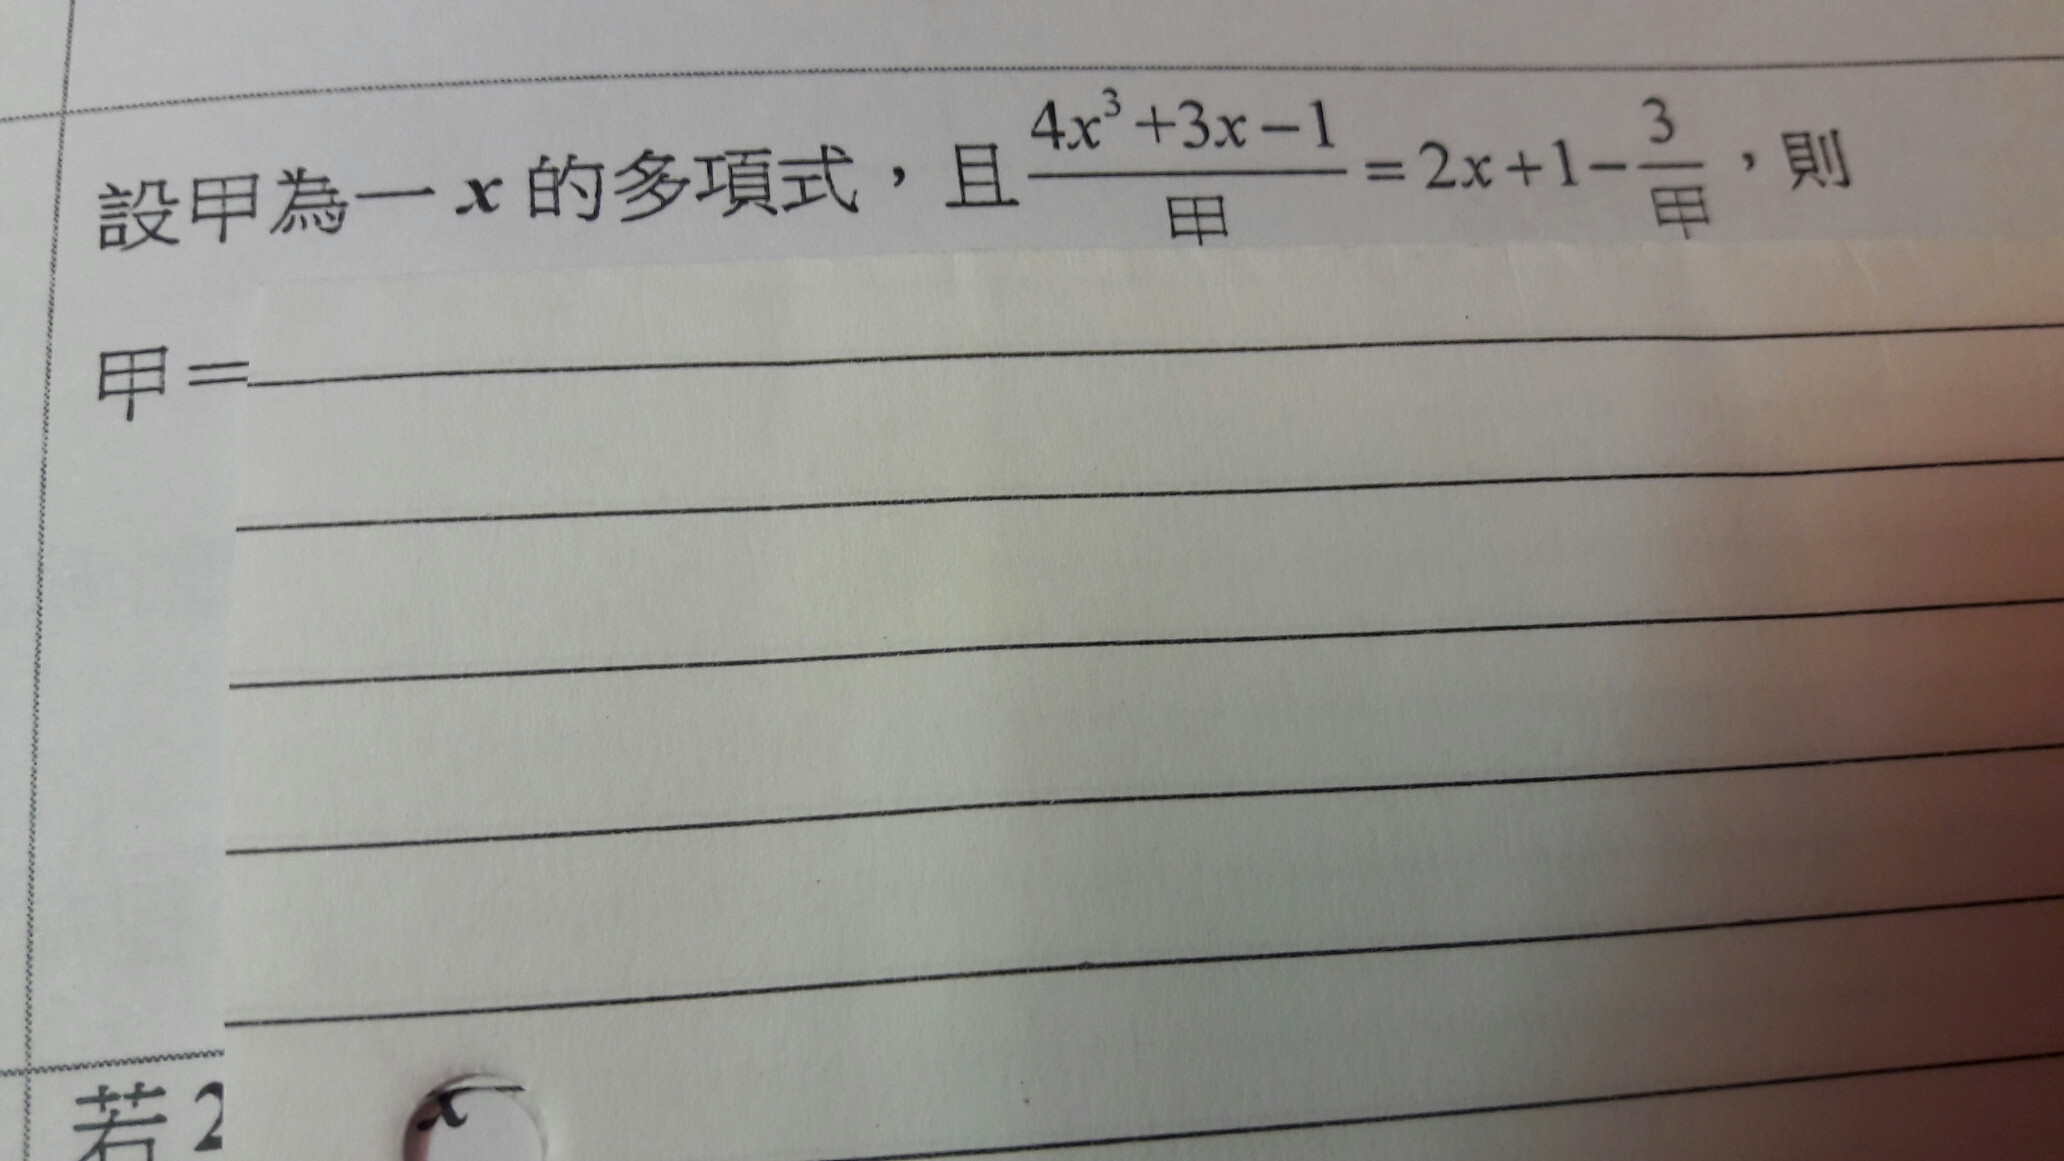 設甲為一 x 的多項式，且 \frac{4x³+3x−1}{甲} = 2x+1− \frac{3}{甲}，則
甲=
若 2
x